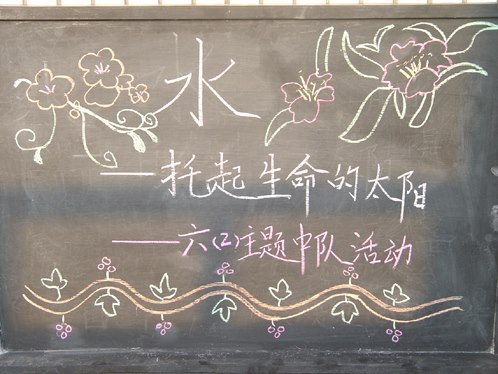 水
——托起生命的太阳
——六(2)主题中队活动